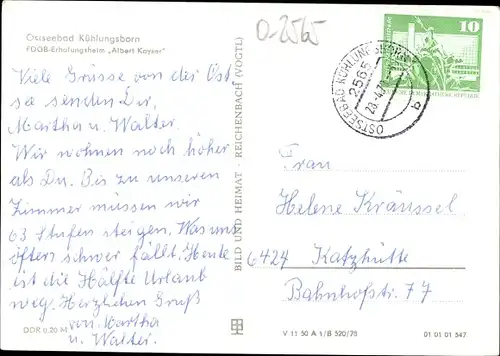 Ostseebad Kühlungsborn
FDGB-Erholungsheim „Albert Kayser"
O-2565
10
DEMOKRATISCHE REPUBLIK
OSTSEEBAD KÜHLUNGSBORN
2565
b
Viele Grüsse von der Ost
see senden Dir,
Martha u. Walter.
Wir wohnen noch höher
als Du. Bis zu unseren
Zimmer müssen wir
63 Stufen steigen. Was uns
öfters schwer fällt. Heute
ist die Hälfte Urlaub
weg. Herzlichen Gruß
von Martha
u. Walter.
DDR 0,20 M
BILD UND HEIMAT · REICHENBACH (VOGTL)
Frau
Helene Kräussel
6424 Katzhütte
Bahnhofstr. 77
V 11 50 A 1/B 520/75
01 01 01 547